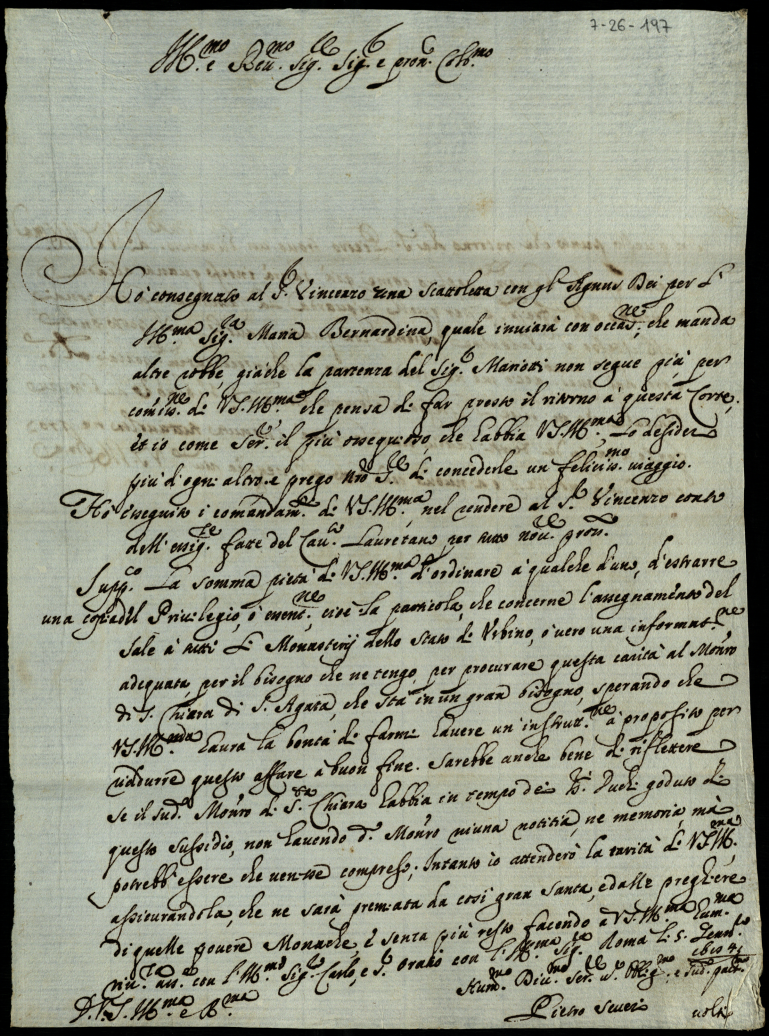 7-26-197
Ill.mo e Reu.mo Sig.re Sig.re e pron. Col.mo
Hò consegnato al S.r Vincenzo una scattoletta con gl'Agnus Dei per l'
Ill.ma Sig.ra Maria Bernardina, quale inuiarà con occas.ne, che manda
altre robbe, giàche la partenza del Sig.r Mariotti non segue più per
com.ne di VS.Ill.ma che pensa di far presto il ritorno à questa Corte,
et io come Ser.re il più ossequioso che habbia VS.Ill.ma, lo desidero
più d'ogn'altro e prego nro S.re di concederle un feliciss.mo uiaggio.
Hò eseguito i comandam.ti di VS.Ill.ma, nel rendere al S.r Vincenzo conto
dell'esig.ze fatte del Cau.re Lauretano per tutto nou.re pross.
Supp.co la somma pietà di VS.Ill.ma d'ordinare à qualche d'uno, d'estrarre
una copia del Priuilegio, ò esent.ne, cioè la particola, che concerne l'assegnamento del
sale à tutti li Monasterij dello Stato di Vrbino, ò uero una informat.ne
adequata, per il bisogno che ne tengo, per procurare questa carità al Mon.ro
di S. Chiara di S. Agata, che sta in un gran bisogno, sperando che
VS.Ill.ma haurà la bontà di farmi hauere un'instrutt.ne à proposito per
ridurre questo affare à buon fine. Sarebbe anche bene di riflettere
se il sud.o Mon.ro di S.ta Chiara habbia in tempo de i Duchi goduto di
questo sussidio, non hauendo d.o Mon.ro niuna notitia, ne memoria, mà
potrebb'essere che uenisse compreso; Intanto io attenderò la carità di VS.Ill.ma,
assicurandola, che ne sarà premiata da così gran Santa, e dalle preghiere
di quelle pouere Monache, è senza più resto facendo à VS.Ill.ma hum.ma
riu.za ass. con l'Ill.mo Sig.r Carlo, e S. Oratio con l'Ill.ma Sig.ra Roma li 5 Genn.ro
D. V. S. Ill.ma e R.ma
Hum.mo Diu.mo Ser.re u.o obblig.mo
Pietro Seueri
uolti